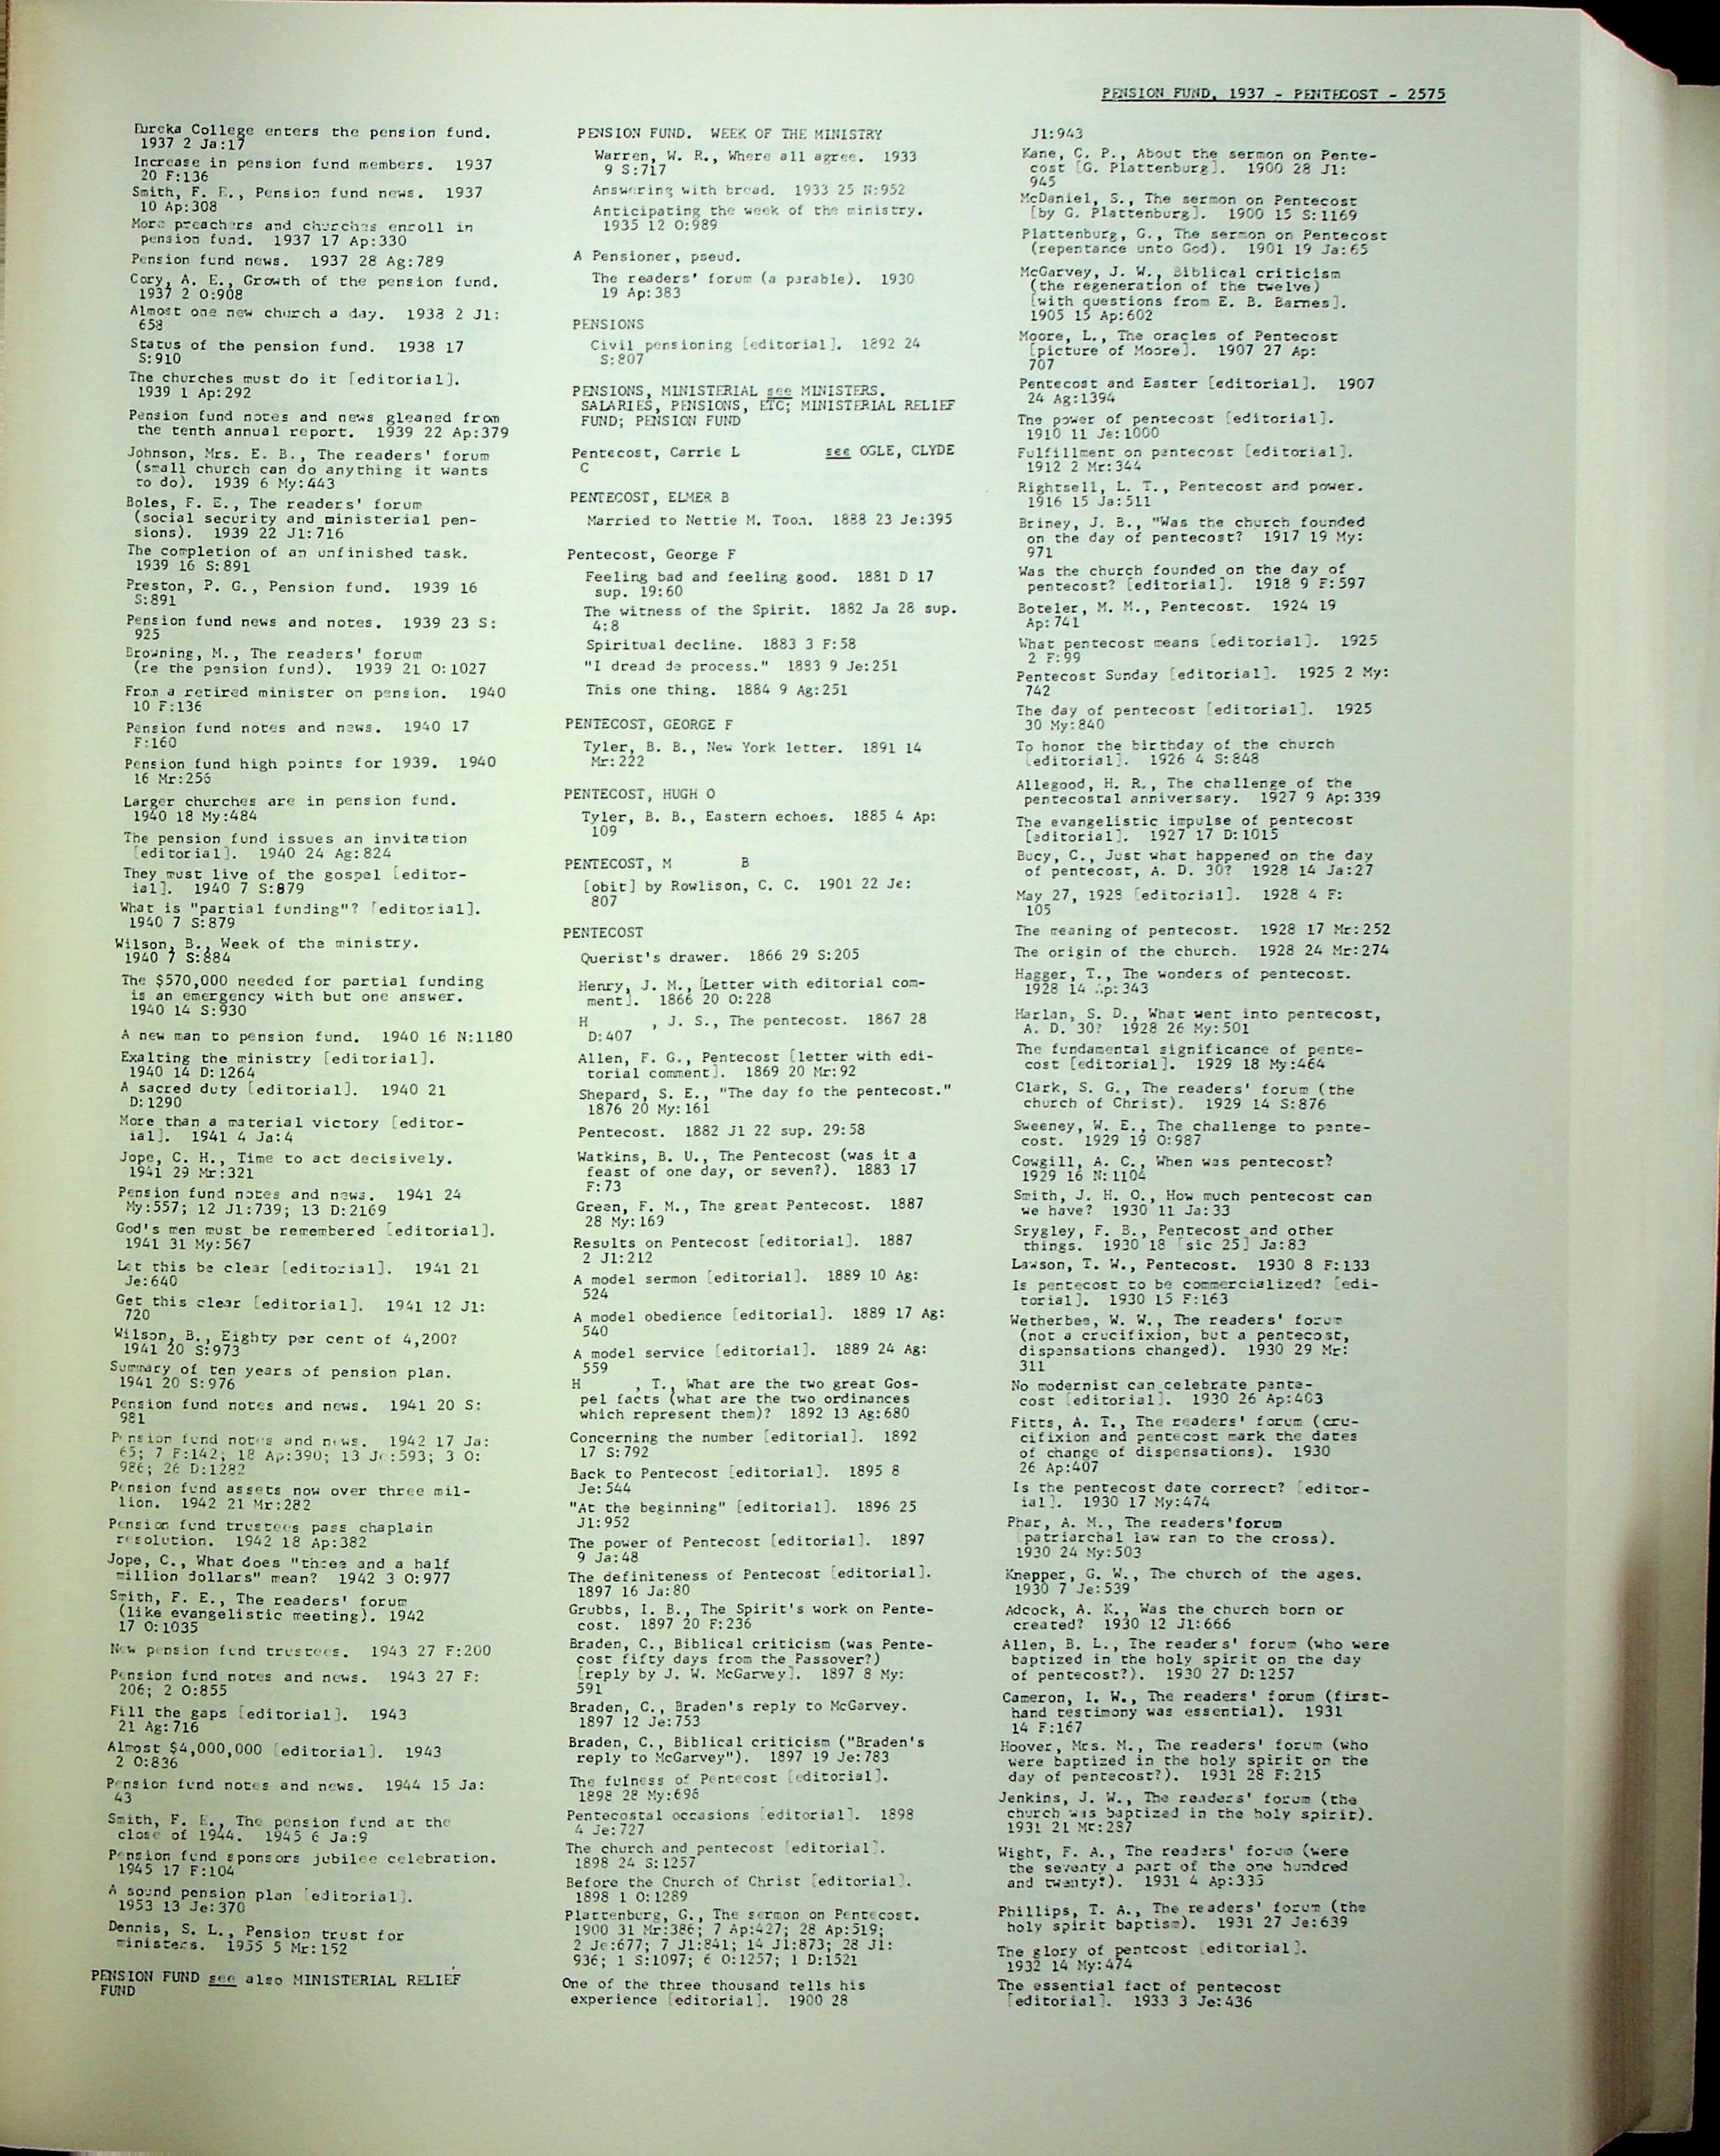 PENSION FUND, 1937 - PENTECOST - 2575
Eureka College enters the pension fund.
1937 2 Ja:17
Increase in pension fund members. 1937
20 F:136
Smith, F. E., Pension fund news. 1937
10 Ap:308
More preachers and churches enroll in
pension fund. 1937 17 Ap:330
Pension fund news. 1937 28 Ag:789
Cory, A. E., Growth of the pension fund.
1937 2 O:908
Almost one new church a day. 1938 2 Jl:
658
Status of the pension fund. 1938 17
S:910
The churches must do it [editorial].
1939 1 Ap:292
Pension fund notes and news gleaned from
the tenth annual report. 1939 22 Ap:379
Johnson, Mrs. E. B., The readers' forum
(small church can do anything it wants
to do). 1939 6 My:443
Boles, F. E., The readers' forum
(social security and ministerial pen-
sions). 1939 22 Jl:716
The completion of an unfinished task.
1939 16 S:891
Preston, P. G., Pension fund. 1939 16
S:891
Pension fund news and notes. 1939 23 S:
925
Browning, M., The readers' forum
(re the pension fund). 1939 21 O:1027
From a retired minister on pension. 1940
10 F:136
Pension fund notes and news. 1940 17
F:160
Pension fund high points for 1939. 1940
16 Mr:256
Larger churches are in pension fund.
1940 18 My:484
The pension fund issues an invitation
[editorial]. 1940 24 Ag:824
They must live of the gospel [editor-
ial]. 1940 7 S:879
What is "partial funding"? [editorial].
1940 7 S:879
Wilson, B., Week of the ministry.
1940 7 S:884
The $570,000 needed for partial funding
is an emergency with but one answer.
1940 14 S:930
A new man to pension fund. 1940 16 N:1180
Exalting the ministry [editorial].
1940 14 D:1264
A sacred duty [editorial]. 1940 21
D:1290
More than a material victory [editor-
ial]. 1941 4 Ja:4
Jope, C. H., Time to act decisively.
1941 29 Mr:321
Pension fund notes and news. 1941 24
My:557; 12 Jl:739; 13 D:2169
God's men must be remembered [editorial].
1941 31 My:567
Let this be clear [editorial]. 1941 21
Je:640
Get this clear [editorial]. 1941 12 Jl:
720
Wilson, B., Eighty per cent of 4,200?
1941 20 S:973
Summary of ten years of pension plan.
1941 20 S:976
Pension fund notes and news. 1941 20 S:
981
Pension fund notes and news. 1942 17 Ja:
65; 7 F:142; 18 Ap:390; 13 Je:593; 3 O:
986; 26 D:1282
Pension fund assets now over three mil-
lion. 1942 21 Mr:282
Pension fund trustees pass chaplain
resolution. 1942 18 Ap:382
Jope, C., What does "three and a half
million dollars" mean? 1942 3 O:977
Smith, F. E., The readers' forum
(like evangelistic meeting). 1942
17 O:1035
New pension fund trustees. 1943 27 F:200
Pension fund notes and news. 1943 27 F:
206; 2 O:855
Fill the gaps [editorial]. 1943
21 Ag:716
Almost $4,000,000 [editorial]. 1943
2 O:836
Pension fund notes and news. 1944 15 Ja:
43
Smith, F. E., The pension fund at the
close of 1944. 1945 6 Ja:9
Pension fund sponsors jubilee celebration.
1945 17 F:104
A sound pension plan [editorial].
1953 13 Je:370
Dennis, S. L., Pension trust for
ministers. 1955 5 Mr:152
PENSION FUND see also MINISTERIAL RELIEF
FUND
PENSION FUND. WEEK OF THE MINISTRY
Warren, W. R., Where all agree. 1933
9 S:717
Answering with bread. 1933 25 N:952
Anticipating the week of the ministry.
1935 12 O:989
A Pensioner, pseud.
The readers' forum (a parable). 1930
19 Ap:383
PENSIONS
Civil pensioning [editorial]. 1892 24
S:807
PENSIONS, MINISTERIAL see MINISTERS.
SALARIES, PENSIONS, ETC; MINISTERIAL RELIEF
FUND; PENSION FUND
Pentecost, Carrie L see OGLE, CLYDE
C
PENTECOST, ELMER B
Married to Nettie M. Toon. 1888 23 Je:395
Pentecost, George F
Feeling bad and feeling good. 1881 D 17
sup. 19:60
The witness of the Spirit. 1882 Ja 28 sup.
4:8
Spiritual decline. 1883 3 F:58
"I dread de process." 1883 9 Je:251
This one thing. 1884 9 Ag:251
PENTECOST, GEORGE F
Tyler, B. B., New York letter. 1891 14
Mr:222
PENTECOST, HUGH O
Tyler, B. B., Eastern echoes. 1885 4 Ap:
109
PENTECOST, M B
[obit] by Rowlison, C. C. 1901 22 Je:
807
PENTECOST
Querist's drawer. 1866 29 S:205
Henry, J. M., [Letter with editorial com-
ment]. 1866 20 O:228
H , J. S., The pentecost. 1867 28
D:407
Allen, F. G., Pentecost [letter with edi-
torial comment]. 1869 20 Mr:92
Shepard, S. E., "The day fo the pentecost."
1876 20 My:161
Pentecost. 1882 Jl 22 sup. 29:58
Watkins, B. U., The Pentecost (was it a
feast of one day, or seven?). 1883 17
F:73
Green, F. M., The great Pentecost. 1887
28 My:169
Results on Pentecost [editorial]. 1887
2 Jl:212
A model sermon [editorial]. 1889 10 Ag:
524
A model obedience [editorial]. 1889 17 Ag:
540
A model service [editorial]. 1889 24 Ag:
559
H , T., What are the two great Gos-
pel facts (what are the two ordinances
which represent them)? 1892 13 Ag:680
Concerning the number [editorial]. 1892
17 S:792
Back to Pentecost [editorial]. 1895 8
Je:544
"At the beginning" [editorial]. 1896 25
Jl:952
The power of Pentecost [editorial]. 1897
9 Ja:48
The definiteness of Pentecost [editorial].
1897 16 Ja:80
Grubbs, I. B., The Spirit's work on Pente-
cost. 1897 20 F:236
Braden, C., Biblical criticism (was Pente-
cost fifty days from the Passover?)
[reply by J. W. McGarvey]. 1897 8 My:
591
Braden, C., Braden's reply to McGarvey.
1897 12 Je:753
Braden, C., Biblical criticism ("Braden's
reply to McGarvey"). 1897 19 Je:783
The fulness of Pentecost [editorial].
1898 28 My:696
Pentecostal occasions [editorial]. 1898
4 Je:727
The church and pentecost [editorial].
1898 24 S:1257
Before the Church of Christ [editorial].
1898 1 O:1289
Plattenburg, G., The sermon on Pentecost.
1900 31 Mr:386; 7 Ap:427; 28 Ap:519;
2 Je:677; 7 Jl:841; 14 Jl:873; 28 Jl:
936; 1 S:1097; 6 O:1257; 1 D:1521
One of the three thousand tells his
experience [editorial]. 1900 28
Jl:943
Kane, C. P., About the sermon on Pente-
cost [G. Plattenburg]. 1900 28 Jl:
945
McDaniel, S., The sermon on Pentecost
[by G. Plattenburg]. 1900 15 S:1169
Plattenburg, G., The sermon on Pentecost
(repentance unto God). 1901 19 Ja:65
McGarvey, J. W., Biblical criticism
(the regeneration of the twelve)
[with questions from E. B. Barnes].
1905 15 Ap:602
Moore, L., The oracles of Pentecost
[picture of Moore]. 1907 27 Ap:
707
Pentecost and Easter [editorial]. 1907
24 Ag:1394
The power of pentecost [editorial].
1910 11 Je:1000
Fulfillment on pentecost [editorial].
1912 2 Mr:344
Rightsell, L. T., Pentecost and power.
1916 15 Ja:511
Briney, J. B., "Was the church founded
on the day of pentecost? 1917 19 My:
971
Was the church founded on the day of
pentecost? [editorial]. 1918 9 F:597
Boteler, M. M., Pentecost. 1924 19
Ap:741
What pentecost means [editorial]. 1925
2 F:99
Pentecost Sunday [editorial]. 1925 2 My:
742
The day of pentecost [editorial]. 1925
30 My:840
To honor the birthday of the church
[editorial]. 1926 4 S:848
Allegood, H. R., The challenge of the
pentecostal anniversary. 1927 9 Ap:339
The evangelistic impulse of pentecost
[editorial]. 1927 17 D:1015
Bucy, C., Just what happened on the day
of pentecost, A. D. 30? 1928 14 Ja:27
May 27, 1928 [editorial]. 1928 4 F:
105
The meaning of pentecost. 1928 17 Mr:252
The origin of the church. 1928 24 Mr:274
Hagger, T., The wonders of pentecost.
1928 14 Ap:343
Harlan, S. D., What went into pentecost,
A. D. 30? 1928 26 My:501
The fundamental significance of pente-
cost [editorial]. 1929 18 My:464
Clark, S. G., The readers' forum (the
church of Christ). 1929 14 S:876
Sweeney, W. E., The challenge to pente-
cost. 1929 19 O:987
Cowgill, A. C., When was pentecost?
1929 16 N:1104
Smith, J. H. O., How much pentecost can
we have? 1930 11 Ja:33
Srygley, F. B., Pentecost and other
things. 1930 18 [sic 25] Ja:83
Lawson, T. W., Pentecost. 1930 8 F:133
Is pentecost to be commercialized? [edi-
torial]. 1930 15 F:163
Wetherbee, W. W., The readers' forum
(not a crucifixion, but a pentecost,
dispensations changed). 1930 29 Mr:
311
No modernist can celebrate pente-
cost [editorial]. 1930 26 Ap:403
Fitts, A. T., The readers' forum (cru-
cifixion and pentecost mark the dates
of change of dispensations). 1930
26 Ap:407
Is the pentecost date correct? [editor-
ial]. 1930 17 My:474
Phar, A. M., The readers'forum
[patriarchal law ran to the cross).
1930 24 My:503
Knepper, G. W., The church of the ages.
1930 7 Je:539
Adcock, A. K., Was the church born or
created? 1930 12 Jl:666
Allen, B. L., The readers' forum (who were
baptized in the holy spirit on the day
of pentecost?). 1930 27 D:1257
Cameron, I. W., The readers' forum (first-
hand testimony was essential). 1931
14 F:167
Hoover, Mrs. M., The readers' forum (who
were baptized in the holy spirit on the
day of pentecost?). 1931 28 F:215
Jenkins, J. W., The readers' forum (the
church was baptized in the holy spirit).
1931 21 Mr:287
Wight, F. A., The readers' forum (were
the seventy a part of the one hundred
and twenty?). 1931 4 Ap:335
Phillips, T. A., The readers' forum (the
holy spirit baptism). 1931 27 Je:639
The glory of pentcost [editorial].
1932 14 My:474
The essential fact of pentecost
[editorial]. 1933 3 Je:436